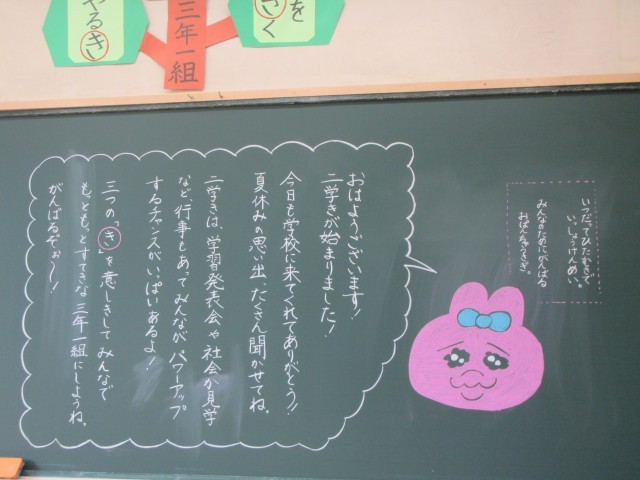 をきく
三年一組
やるき
いつだってひたむきで
いっしょうけんめい。
みんなのためにがんばる
おぱんちゅうさぎ。
おはようございます!
二学きが始まりました!
今日も学校に来てくれてありがとう!!
夏休みの思い出、たくさん聞かせてね。
二学きは、学習発表会や社会か見学
など、行事もあってみんながパワーアップ
するチャンスがいっぱいあるよ!
三つの「き」を意しきしてみんなで
もっともっとすてきな三年一組にしようね。
がんばるぞぉ～!